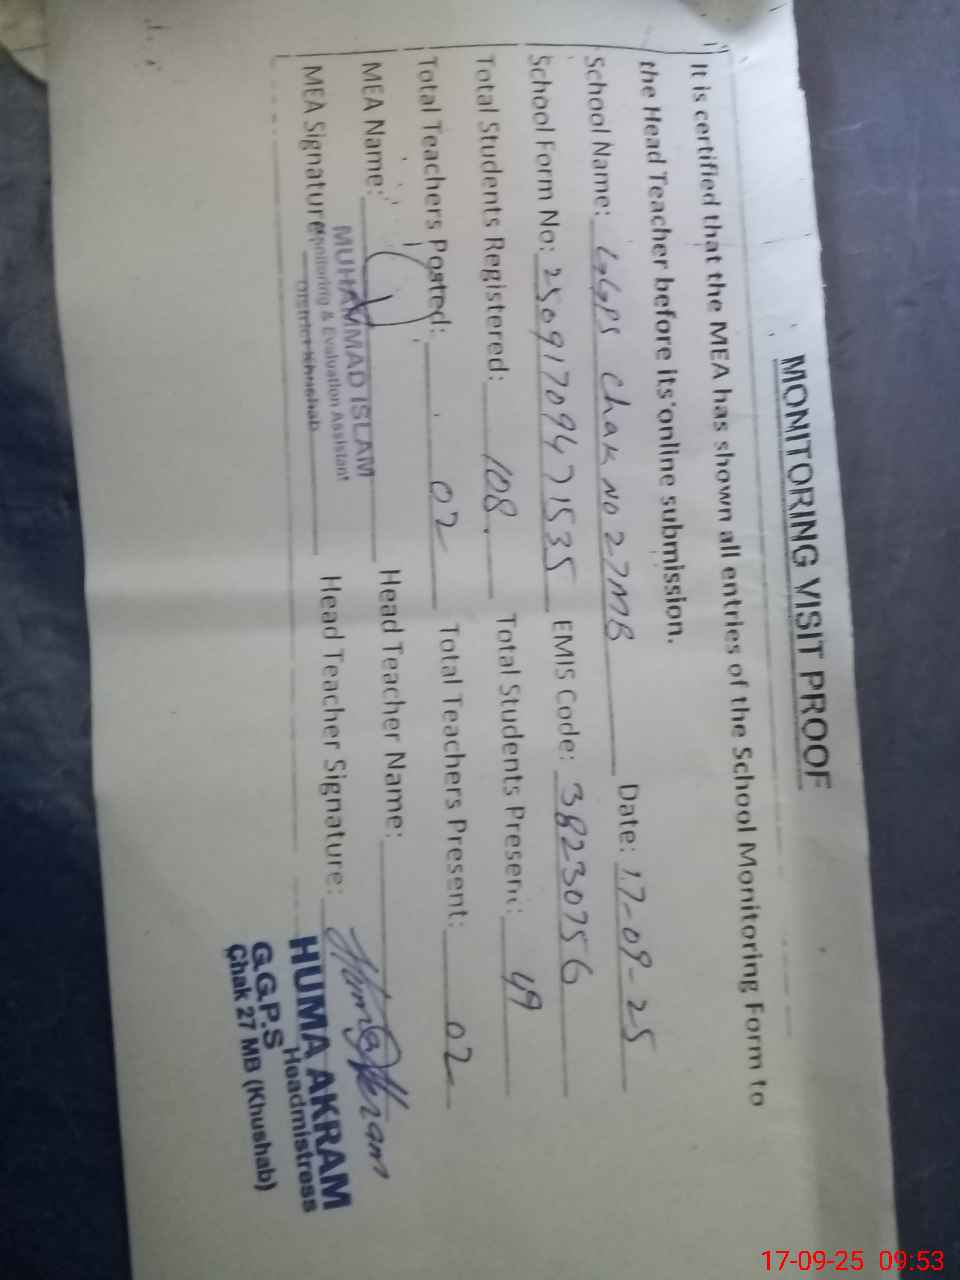 MONITORING VISIT PROOF
It is certified that the MEA has shown all entries of the School Monitoring Form to
the Head Teacher before its online submission.
School Name: GGPS Chak No 27MB Date: 17-09-25
School Form No: 25091709471535 EMIS Code: 38230756
Total Students Registered: 108 Total Students Present: 49
Total Teachers Posted: 02 Total Teachers Present: 02
MEA Name: Head Teacher Name:
MUHAMMAD ISLAM
Monitoring & Evaluation Assistant
District Khushab
MEA Signature: Head Teacher Signature: Huma Akram
HUMA AKRAM
Headmistress
G.G.P.S
Chak 27 MB (Khushab)
17-09-25 09:53